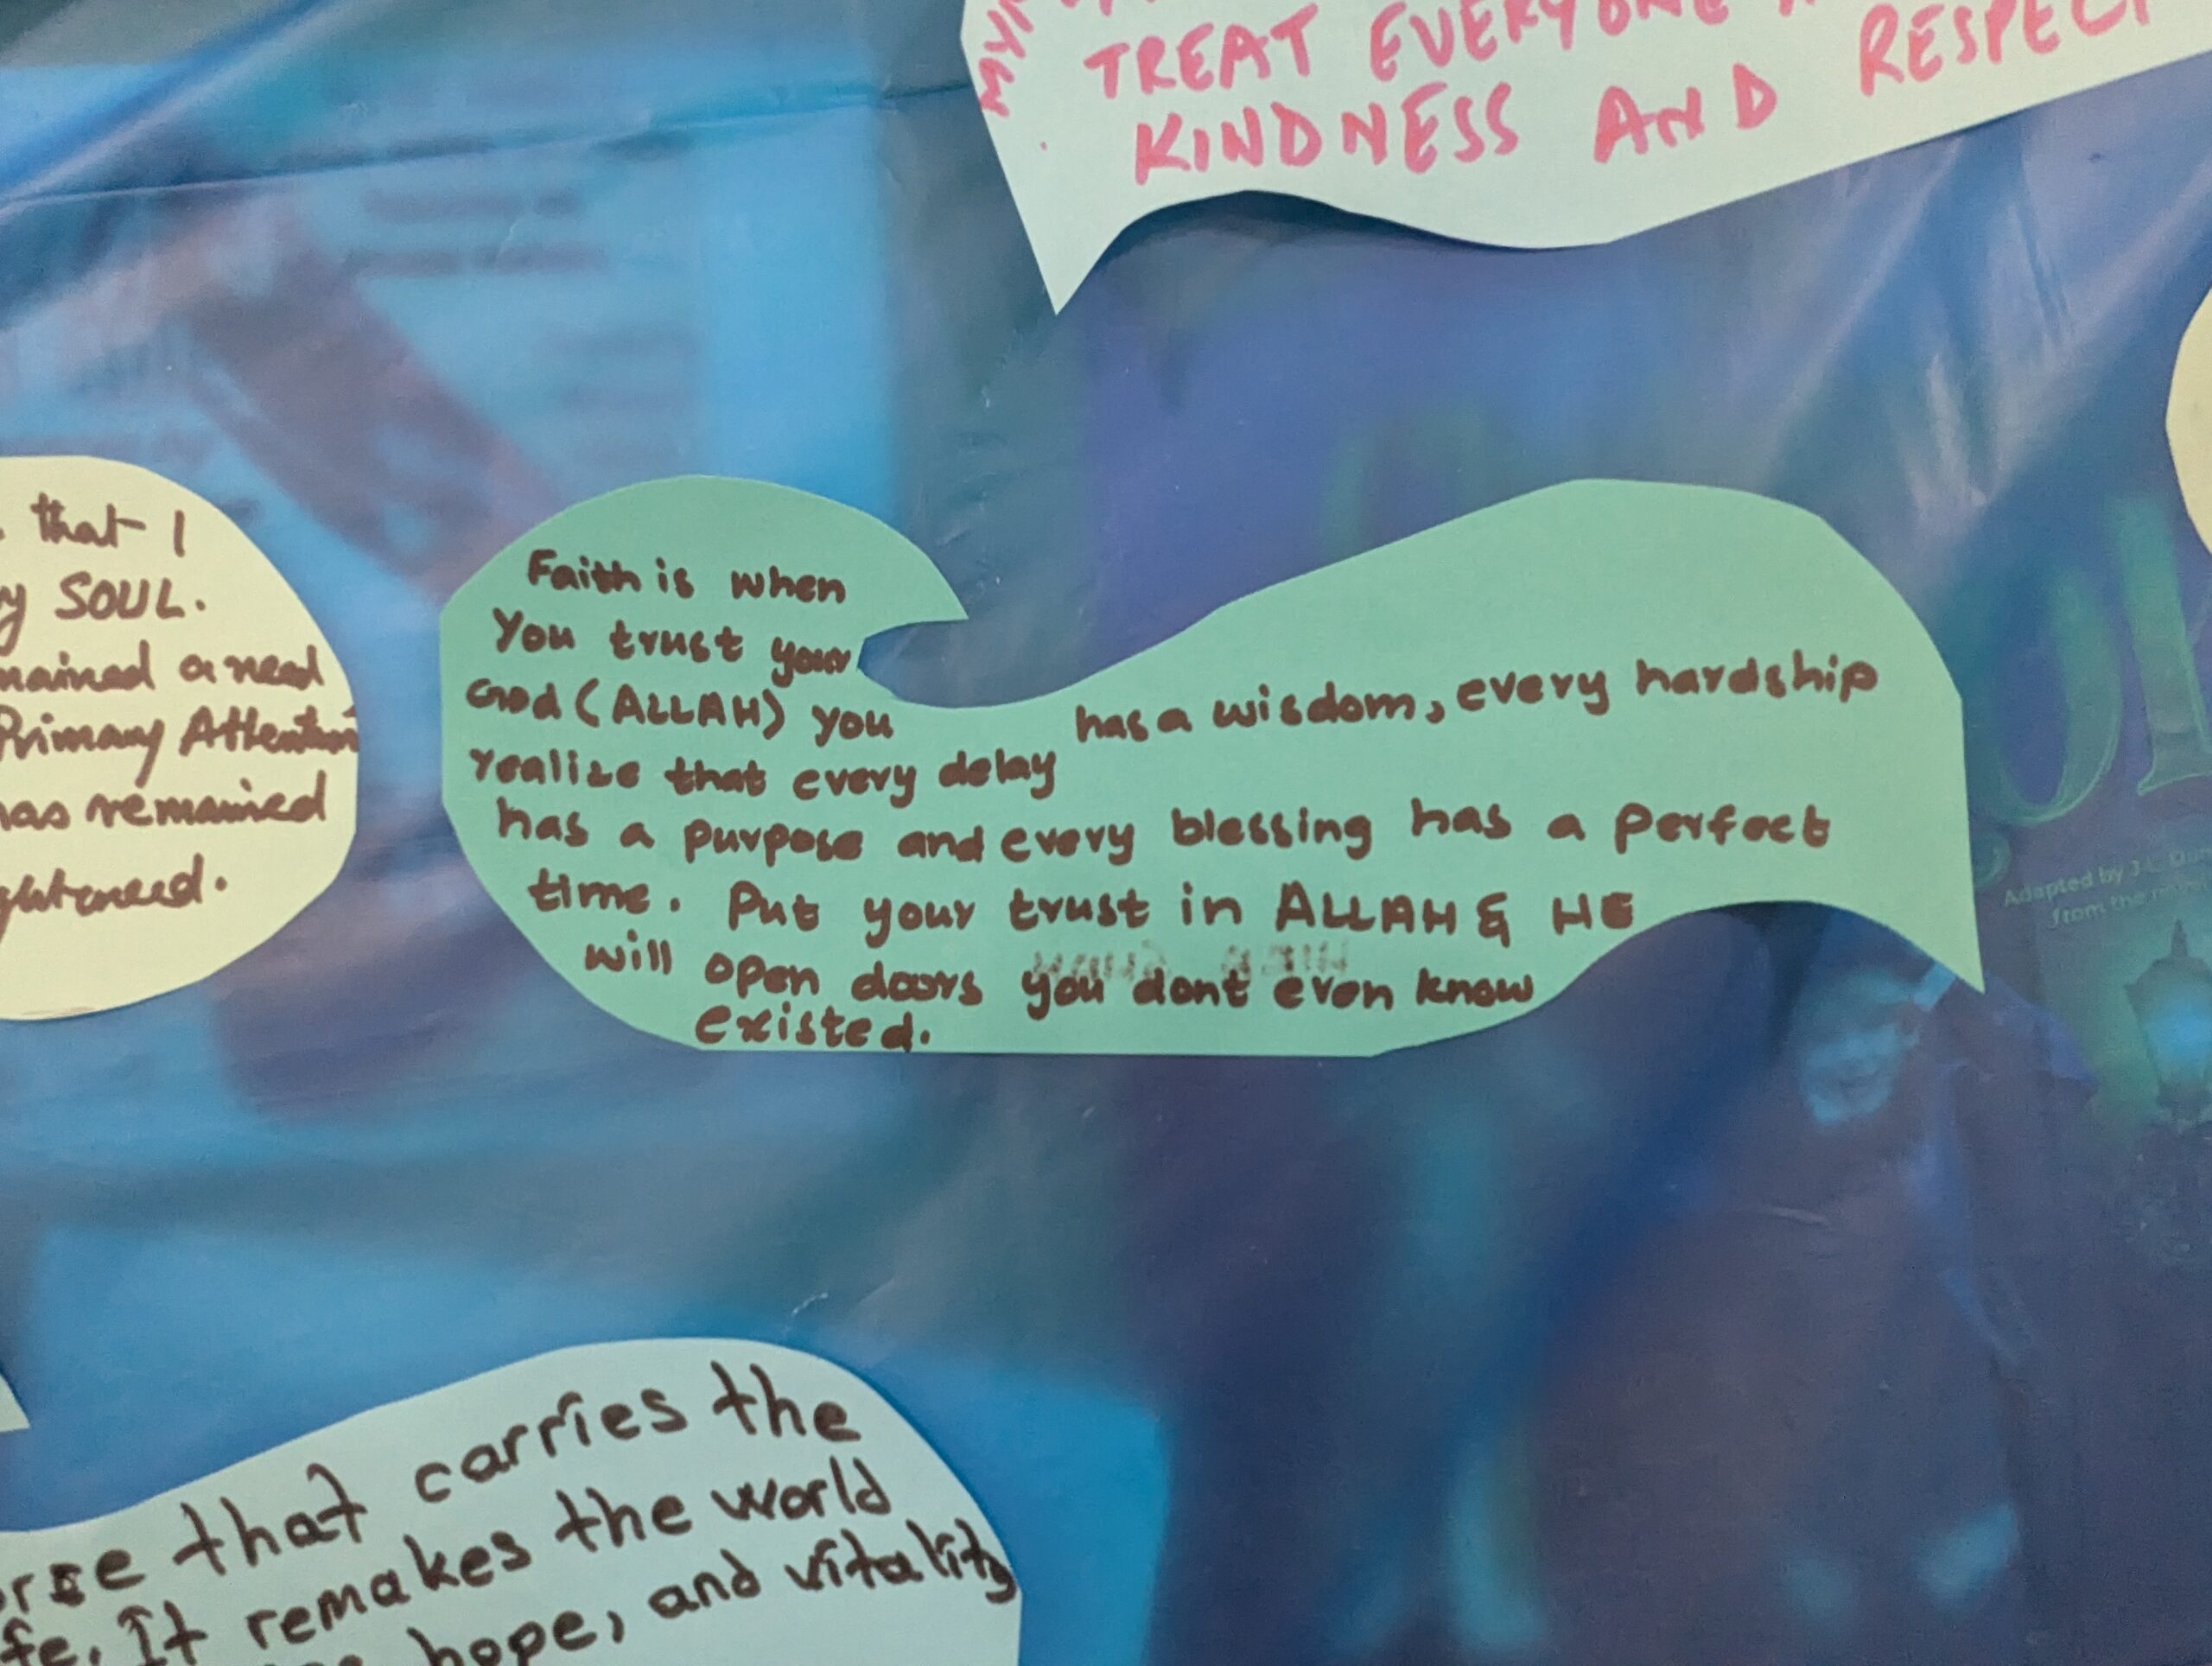 TREAT EVERYONE
KINDNESS AND RESPECT
that I
SOUL.
a need
Primary Attention
has remained
Faith is when
You trust your
God (ALLAH) you
realize that every delay
has a wisdom, every hardship
has a purpose and every blessing has a perfect
time. Put your trust in ALLAH & HE
will open doors you dont even know
existed.
Adapted by J.L.
from the
that carries the
It remakes the world
hope, and vitality